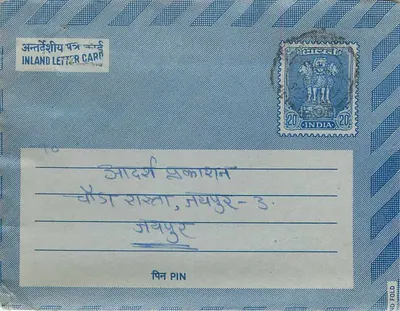 अन्तर्देशीय पत्र कार्ड
INLAND LETTER CARD
भारत
20 INDIA 20
To
आदर्श प्रकाशन
चौडा रास्ता, जयपुर - 3.
जयपुर
पिन PIN
FOLD